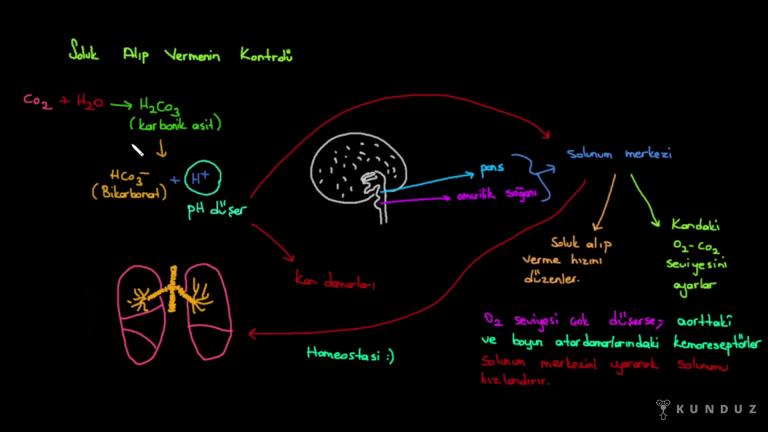 Soluk Alıp Vermenin Kontrolü
CO₂ + H₂O → H₂CO₃
(karbonik asit)
HCO₃⁻ + H⁺
(Bikarbonat)
pH düşer
pons
omurilik soğanı
Solunum merkezi
Soluk alıp
verme hızını
düzenler.
Kandaki
O₂-CO₂
seviyesini
ayarlar
Kan damarları
Homeostasi :)
O₂ seviyesi çok düşerse; aorttaki
ve boyun atardamarlarındaki kemoreseptörler
Solunum merkezini uyararak solunumu
hızlandırır.
KUNDUZ